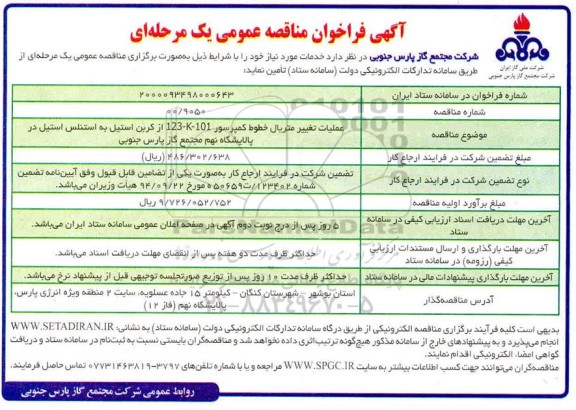 آگهی فراخوان مناقصه عمومی یک مرحله‌ای
شرکت ملی گاز ایران
شرکت مجتمع گاز پارس جنوبی
شرکت مجتمع گاز پارس جنوبی در نظر دارد خدمات مورد نیاز خود را با شرایط ذیل به‌صورت برگزاری مناقصه عمومی یک مرحله‌ای از
طریق سامانه تدارکات الکترونیکی دولت (سامانه ستاد) تأمین نماید:
شماره فراخوان در سامانه ستاد ایران ۲۰۰۰۰۹۳۴۹۸۰۰۰۶۴۳
شماره مناقصه ۰۰/۹۰۵۰
موضوع مناقصه عملیات تغییر متریال خطوط کمپرسور 123-K-101 از کربن استیل به استنلس استیل در
پالایشگاه نهم مجتمع گاز پارس جنوبی
مبلغ تضمین شرکت در فرایند ارجاع کار ۴۸۶/۳۰۲/۶۳۸ (ریال)
نوع تضمین شرکت در فرایند ارجاع کار تضمین شرکت در فرایند ارجاع کار به‌صورت یکی از تضامین قابل قبول وفق آیین‌نامه تضمین
شماره ۱۲۳۴۰۲/ت۵۰۶۵۹ه مورخ ۹۴/۰۹/۲۲ هیأت وزیران می‌باشد.
مبلغ برآورد اولیه مناقصه ۹/۷۲۶/۰۵۲/۷۵۲ ریال
آخرین مهلت دریافت اسناد ارزیابی کیفی در سامانه
ستاد ۵ روز پس از درج نوبت دوم آگهی در صفحه اعلان عمومی سامانه ستاد ایران می‌باشد.
آخرین مهلت بارگذاری و ارسال مستندات ارزیابی
کیفی (رزومه) در سامانه ستاد حداکثر ظرف مدت دو هفته پس از انقضای مهلت دریافت اسناد می‌باشد.
آخرین مهلت بارگذاری پیشنهادات مالی در سامانه ستاد حداکثر ظرف مدت ۱۰ روز پس از توزیع صورتجلسه توجیهی قبل از پیشنهاد نرخ می‌باشد.
آدرس مناقصه‌گذار استان بوشهر - شهرستان کنگان - کیلومتر ۱۵ جاده عسلویه. سایت ۲ منطقه ویژه انرژی پارس،
پالایشگاه نهم (فاز ۱۲)
بدیهی است کلیه فرآیند برگزاری مناقصه الکترونیکی از طریق درگاه سامانه تدارکات الکترونیکی دولت (سامانه ستاد) به نشانی: WWW.SETADIRAN.IR
انجام می‌پذیرد و به پیشنهادهای خارج از سامانه مذکور هیچ‌گونه ترتیب‌اثری داده نخواهد شد و مناقصه‌گران بایستی نسبت به ثبت‌نام در سامانه ستاد و دریافت
گواهی امضا، الکترونیکی اقدام نمایند.
مناقصه‌گران می‌توانند جهت کسب اطلاعات بیشتر به سایت WWW.SPGC.IR مراجعه و یا با شماره تلفن‌های ۳۷۹۷-۰۷۷۳۱۴۶۳۸۱۹ تماس حاصل فرمایند.
روابط عمومی شرکت مجتمع گاز پارس جنوبی